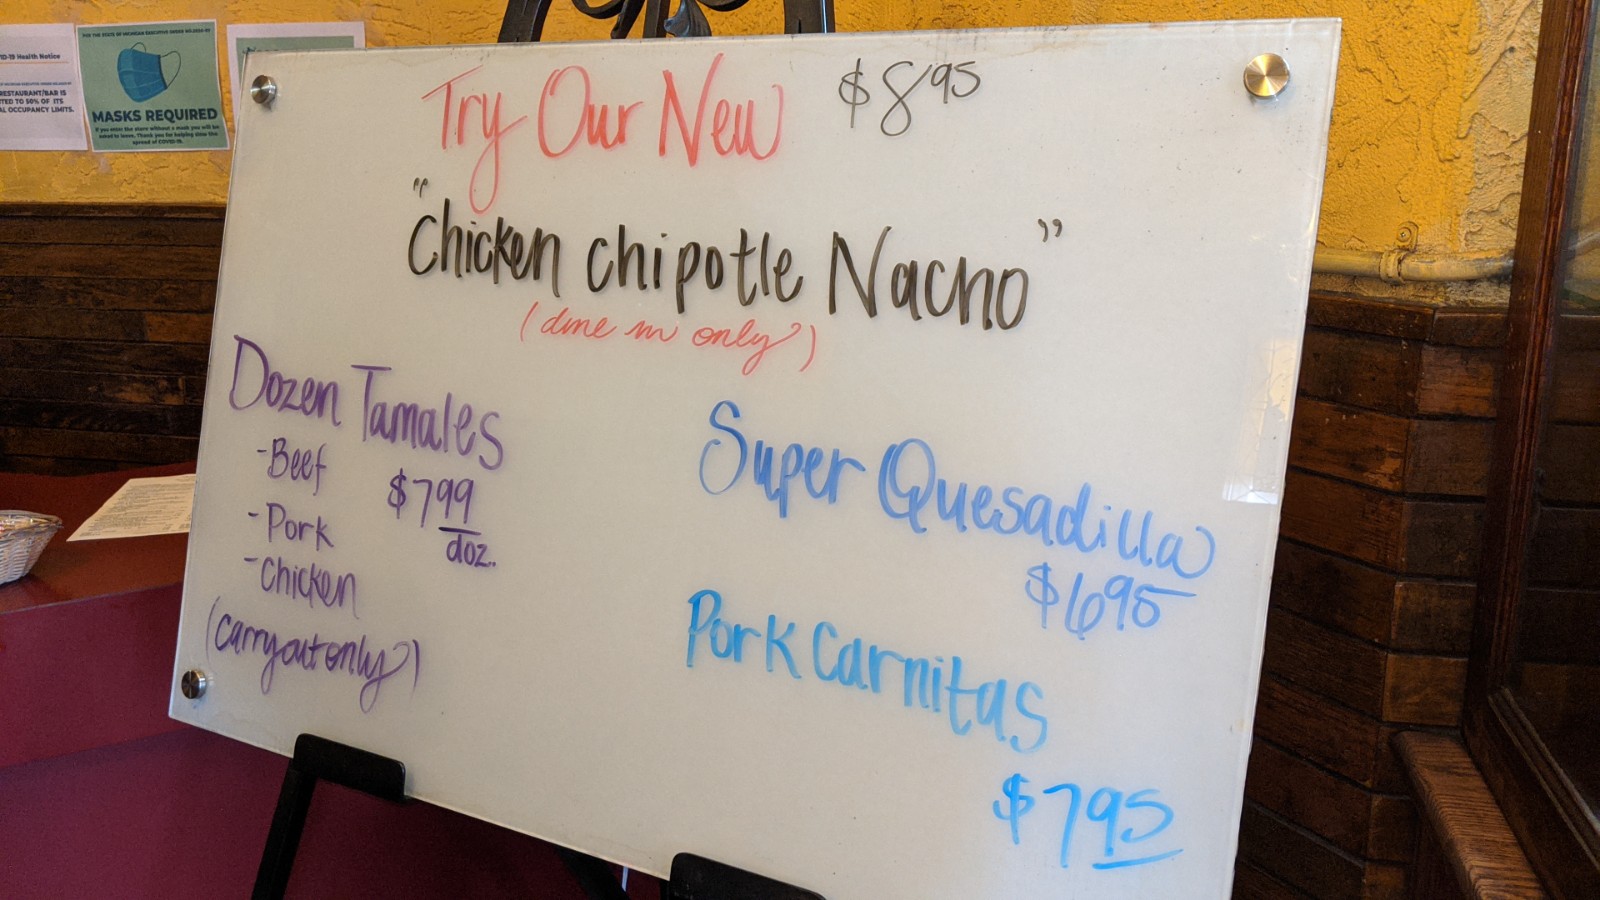 ID-19 Health Notice
RESTAURANT/BAR IS
TED TO 50% OF ITS
AL OCCUPANCY LIMITS.
MASKS REQUIRED
If you enter the store without a mask you will be
asked to leave. Thank you for helping slow the
spread of COVID-19.
Try Our New $8.95
"Chicken Chipotle Nacho"
(dine in only)
Dozen Tamales
-Beef
$799
doz.
-Pork
-Chicken
(carryout only)
Super Quesadilla
$695
Pork Carnitas
$795